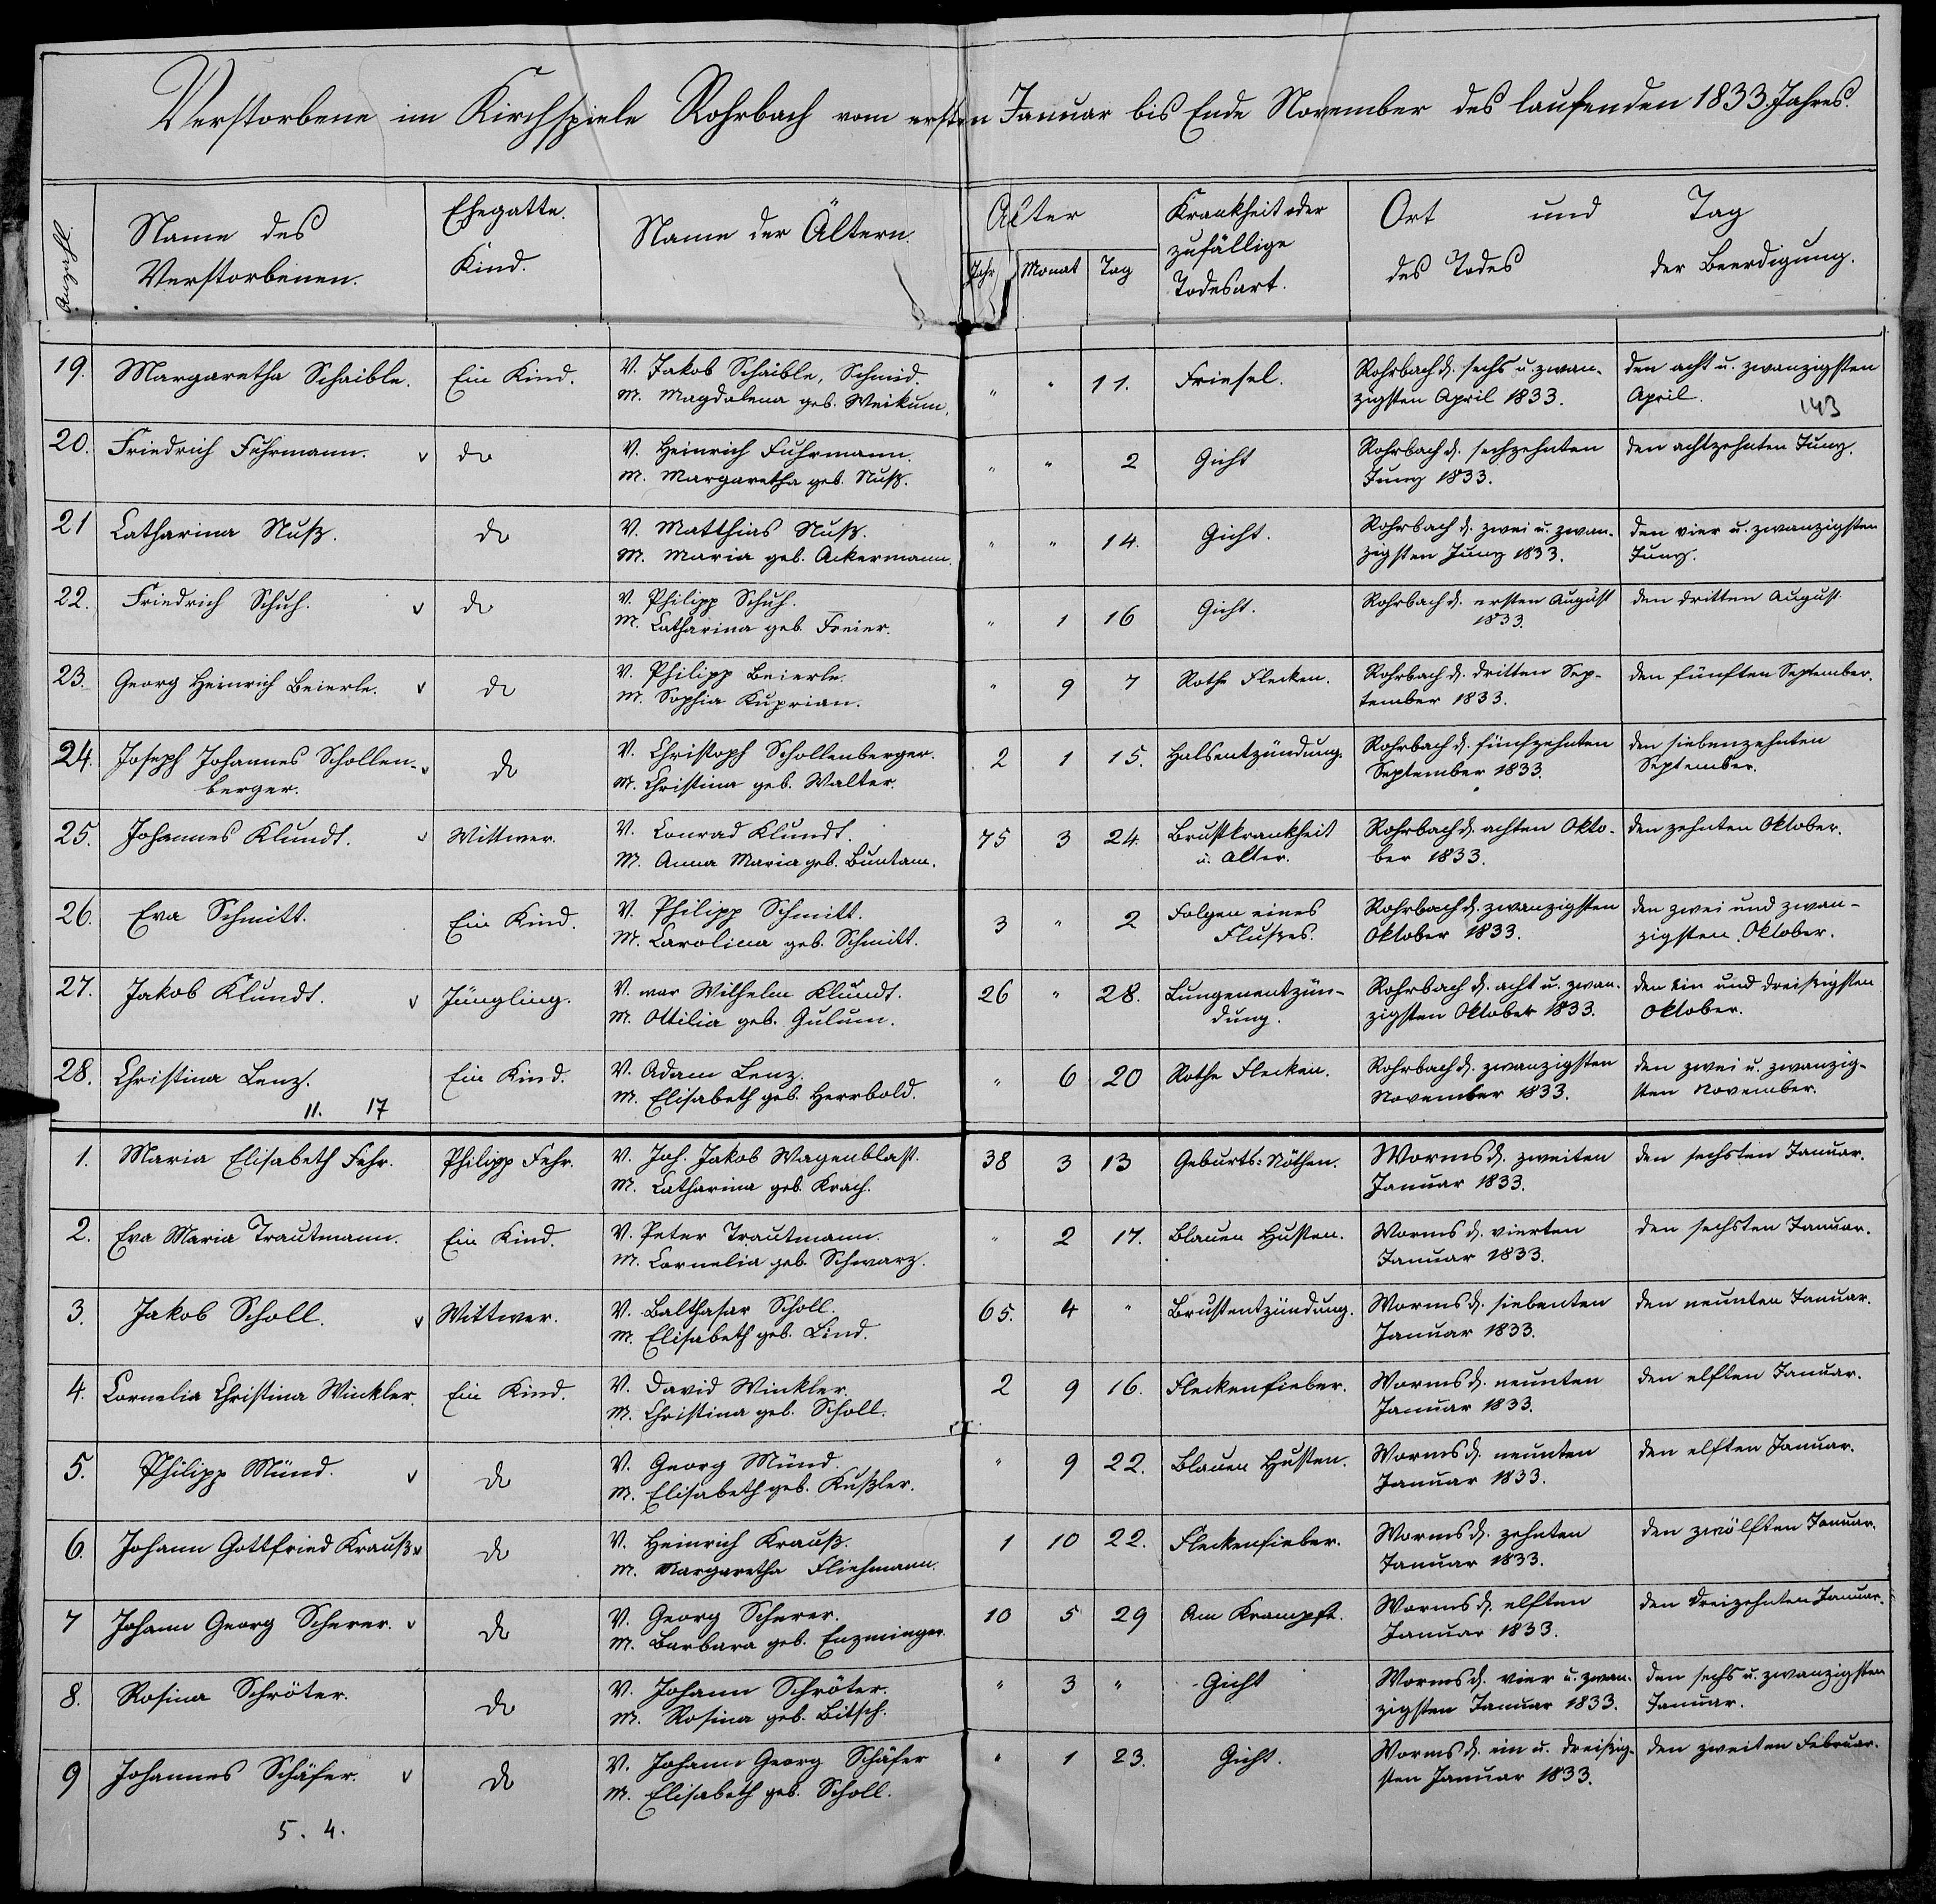 Verstorbene im Kirchspiele Rohrbach vom ersten Januar bis Ende November des laufenden 1833. Jahres.
Anzahl. Name des Verstorbenen. Ehegatte. Kind. Name der Ältern. Alter Jahr Monat Tag Krankheit oder zufällige Todesart. Ort und Tag des Todes der Beerdigung.
19. Margaretha Schaible. Ein Kind. V. Jakob Schaible, Schmid. " " 11. Friesel. Rohrbach d. sechs u. zwan- den acht u. zwanzigsten
M. Magdalena geb. Weikum. zigsten April 1833. April. 143
20. Friedrich Fuhrmann. v do V. Heinrich Fuhrmann. " " 2 Gicht Rohrbach d. sechzehnten den achtzehnten Juny.
M. Margaretha geb. Nuß. Juny 1833.
21 Catharina Nuß. do V. Matthias Nuß. " " 14. Gicht. Rohrbach d. zwei u. zwan- den vier u. zwanzigsten
M. Maria geb. Ackermann. zigsten Juny 1833. Juny.
22. Friedrich Schuh. v do V. Philipp Schuh. " 1 16 Gicht. Rohrbach d. ersten August den dritten August
M. Catharina geb. Freier. 1833.
23. Georg Heinrich Beierle. v do V. Philipp Beierle. " 9 7 Rothe Flecken. Rohrbach d. dritten Sep- den fünften September.
M. Sophia Kuprian. tember 1833.
24. Joseph Johannes Schollen- v do V. Christoph Schollenberger. 2 1 15. Halsentzündung. Rohrbach d. fünfzehnten den siebenzehnten
berger. M. Christina geb. Walter. September 1833. September.
25. Johannes Klundt. v Wittwer. V. Conrad Klundt. 75 3 24. Brustkrankheit Rohrbach d. achten Okto- den zehnten Oktober.
M. Anna Maria geb. Buntam. u. Alter. ber 1833.
26. Eva Schmitt. Ein Kind. V. Philipp Schmitt. 3 " 2 Folgen eines Rohrbach d. zwanzigsten den zwei und zwan-
M. Carolina geb. Schmitt. Flußes. Oktober 1833. zigsten Oktober.
27. Jakob Klundt. v Jüngling. V. war Wilhelm Klundt. 26 " 28. Lungenentzün- Rohrbach d. acht u. zwan- den ein und dreißigsten
M. Ottilia geb. Gulum. dung. zigsten Oktober 1833. Oktober.
28. Christina Lenz. Ein Kind. V. Adam Lenz. " 6 20 Rothe Flecken. Rohrbach d. zwanzigsten den zwei u. zwanzig-
11. 17 M. Elisabeth geb. Herrbold. November 1833. sten November.
1. Maria Elisabeth Fehr. Philipp Fehr. V. Joh. Jakob Wagenblast. 38 3 13 Geburts-Nöthen. Worms d. zweiten den sechsten Januar.
M. Catharina geb. Krach. Januar 1833.
2. Eva Maria Trautmann. Ein Kind. V. Peter Trautmann. " 2 17. Blauen Husten. Worms d. vierten den sechsten Januar.
M. Cornelia geb. Schwarz. Januar 1833.
3. Jakob Scholl. v Wittwer. V. Balthasar Scholl. 65. 4 " Brustentzündung. Worms d. siebenten den neunten Januar.
M. Elisabeth geb. Lind. Januar 1833.
4. Cornelia Christina Winkler. Ein Kind. V. David Winkler. 2 9 16. Fleckenfieber. Worms d. neunten den elften Januar.
M. Christina geb. Scholl. Januar 1833.
5. Philipp Münd. v do V. Georg Münd. " 9 22. Blauen Husten. Worms d. neunten den elften Januar.
M. Elisabeth geb. Kußler. Januar 1833.
6. Johann Gottfried Krauß v do V. Heinrich Krauß. 1 10 22. Fleckenfieber. Worms d. zehnten den zwölften Januar.
M. Margaretha Fliehmann. Januar 1833.
7 Johann Georg Scherer. v do V. Georg Scherer. 10 5 29 Am Krampft. Worms d. elften den dreizehnten Januar.
M. Barbara geb. Enzminger. Januar 1833.
8. Rosina Schröter. do V. Johann Schröter. " 3 " Gicht Worms d. vier u. zwan- den sechs u. zwanzigsten
M. Rosina geb. Bitsch. zigsten Januar 1833. Januar.
9 Johannes Schäfer. v do V. Johann Georg Schäfer " 1 23. Gicht. Worms d. ein u. dreißig- den zweiten Februar.
M. Elisabeth geb. Scholl. sten Januar 1833.
5. 4.